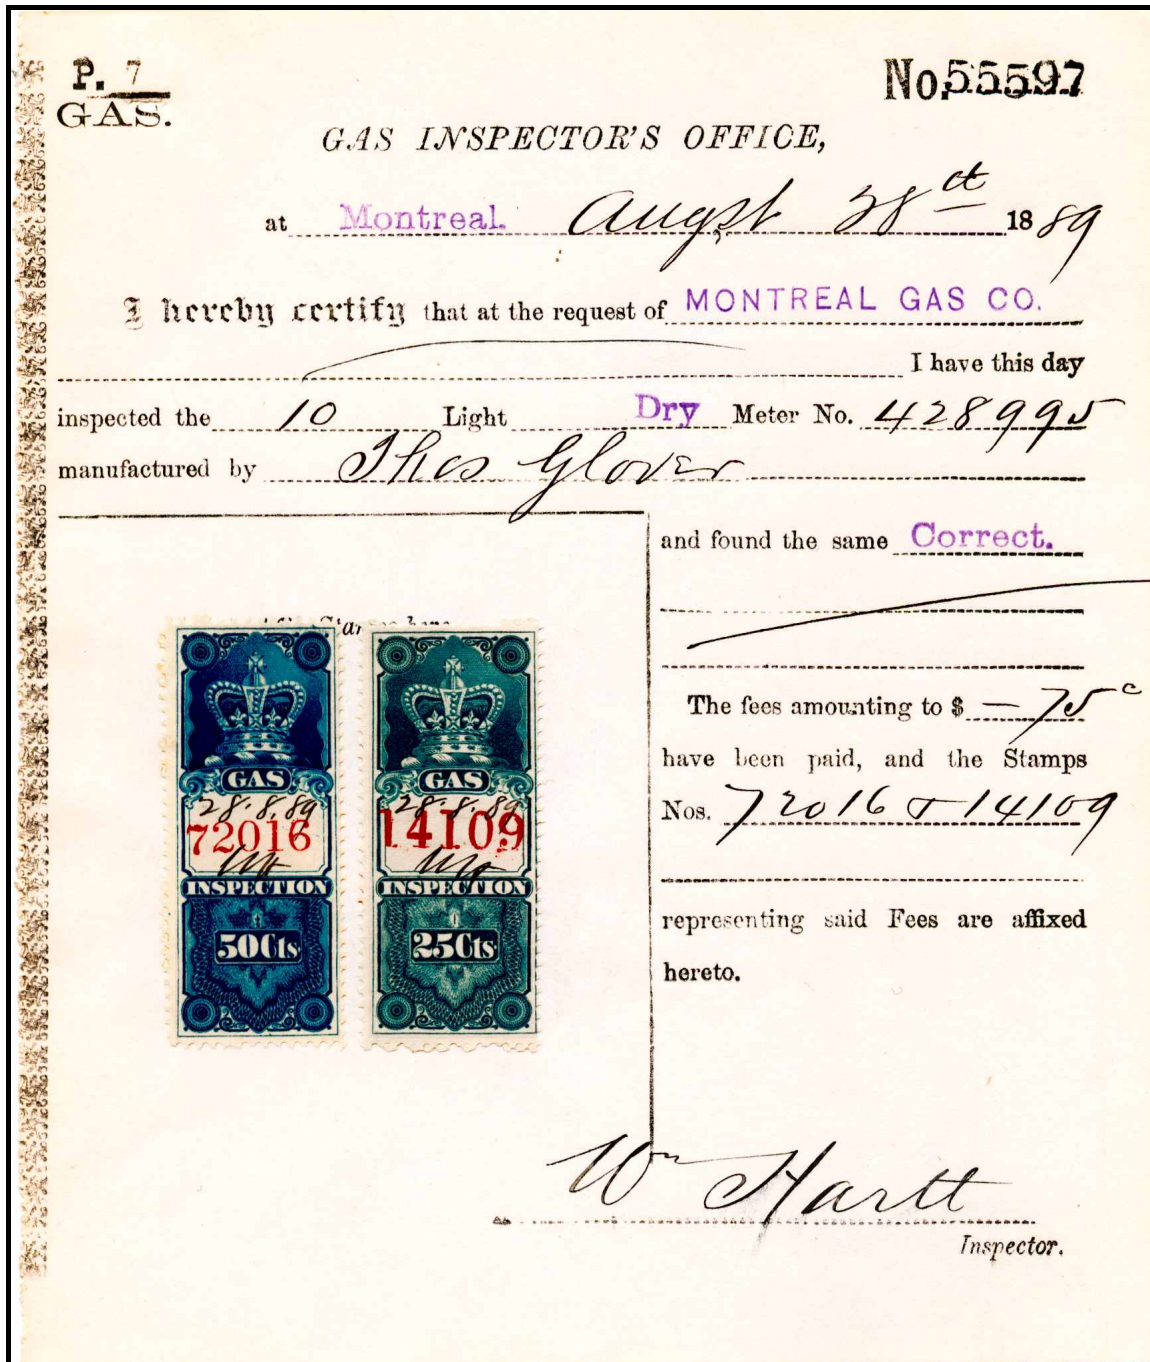 P. 7
GAS.
No. 55597
GAS INSPECTOR'S OFFICE,
at Montreal. Augst 28th 1889
I hereby certify that at the request of MONTREAL GAS CO.
I have this day
inspected the 10 Light Dry Meter No. 428995
manufactured by Thos Glover
and found the same Correct.
The fees amounting to $ — 75c
have been paid, and the Stamps
Nos. 72016 & 14109
representing said Fees are affixed
hereto.
GAS
28.8.89
72016
WH
INSPECTION
50Cts
GAS
28.8.89
14109
WH
INSPECTION
25Cts
Wm Hartt
Inspector.